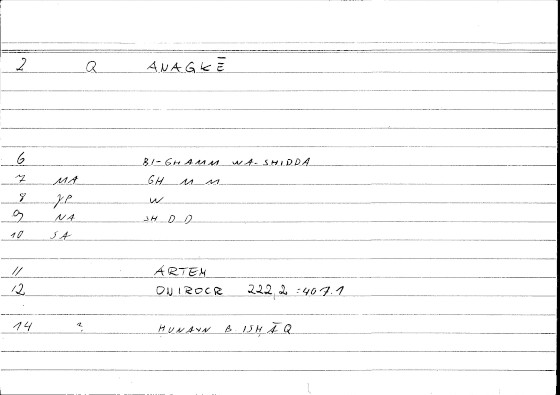 2 Q ANAGKĒ
6 BI-GHAMM WA-SHIDDA
7 MA GH M M
8 JP W
9 NA SH D D
10 SA
11 ARTEM
12 ONIROCR 222,2 : 407.1
14 ? HUNAYN B ISHĀQ